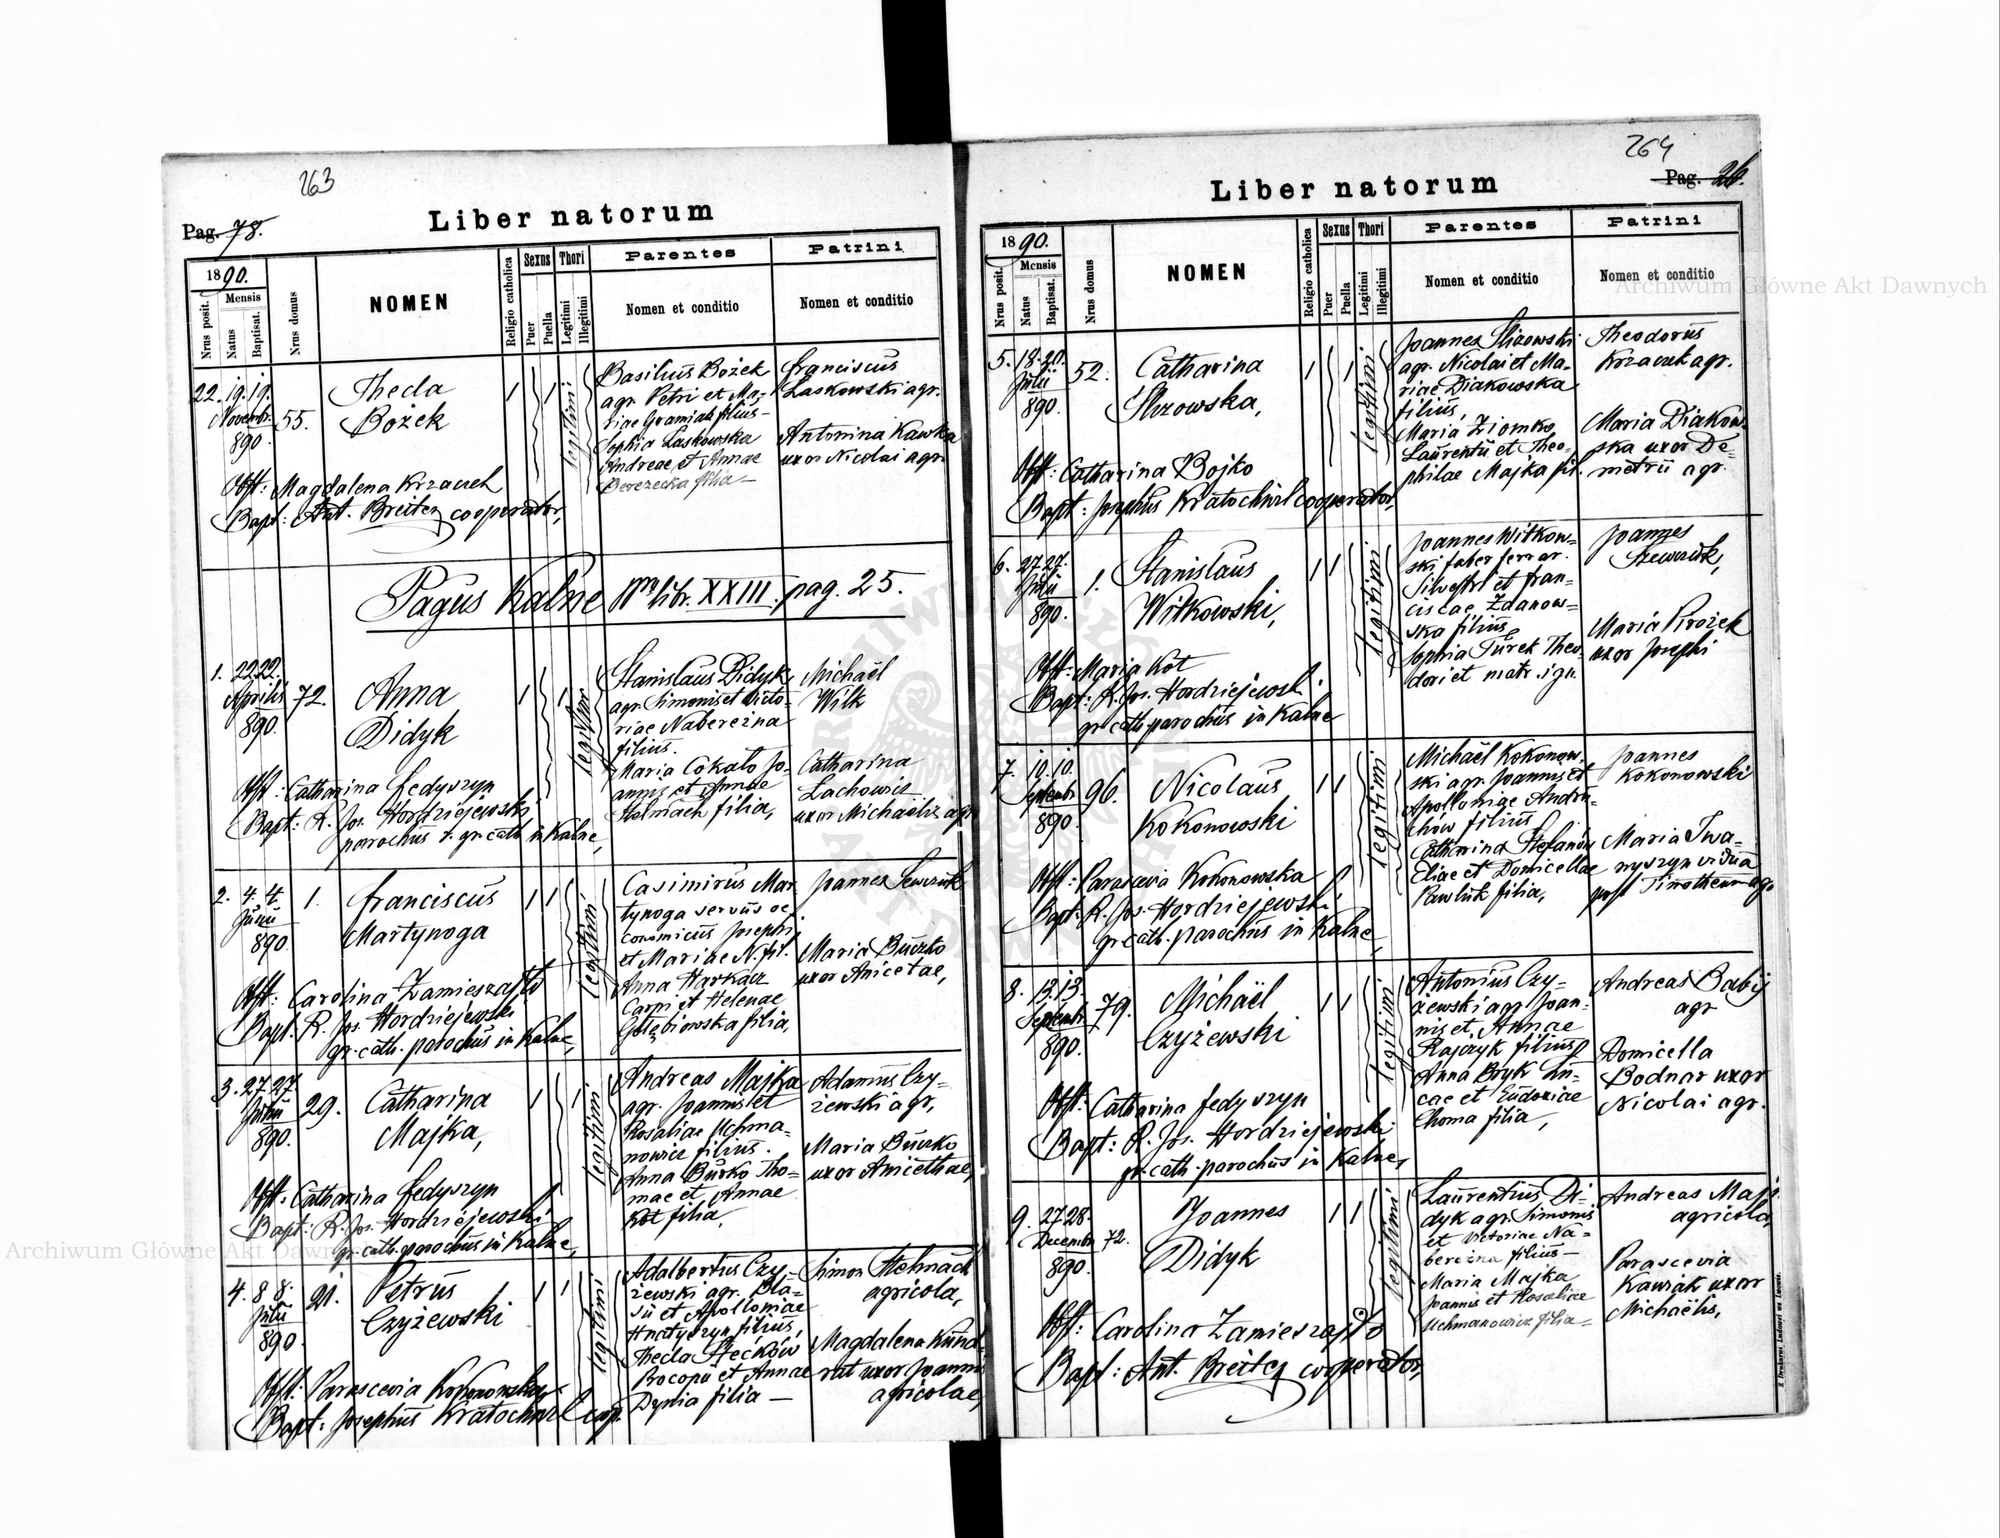 263
Pag. 78.
Liber natorum
1890.
Nrus posit.
Mensis
Natus
Baptisat.
Nrus domus
NOMEN
Religio catholica
Sexus
Puer
Puella
Thori
Legitimi
Illegitimi
Parentes
Nomen et conditio
Patrini
Nomen et conditio
22. 19. 19.
Novembr.
890.
55.
Thecla
Bożek
1
1
legitimi
Basilius Bożek
agr. Petri et Ma-
riae Gramiak filius –
Sophia Laskowska
Andreae et Annae
Berezecka filia –
Franciscus
Laskowski agr.
Antonina Kawka
uxor Nicolai agr.
Obst: Magdalena Krzaczek
Bapt: Ant. Breiter cooperator,
Pagus Kalne lib. XXIII. pag. 25.
1. 22 22.
Aprilis
890.
72.
Anna
Didyk
1
1
legitimi
Stanislaus Didyk
agr. Simonis et Victo-
riae Nabereżna
filius.
Maria Cokało Jo-
annis et Annae
Stelmach filia,
Michaël
Wilk
Catharina
Lachowis
uxor Michaëlis agr.
Obst: Catharina Fedyszyn
Bapt: R. Jos. Hordziejewski
parochus r. gr. cath. in Kalne,
2. 4. 4.
Junii
890.
1.
Franciscus
Martynoga
1
1
legitimi
Casimirus Mar-
tynoga servus oe-
conomicus Josephi
et Mariae N. fil.
Anna Harkacz
Carpi et Helenae
Gołąbiowska filia,
Joannes Szewczuk
Maria Buczko
uxor Anicetae,
Obst: Carolina Zamieszajło
Bapt. R. Jos. Hordziejewski
gr. cath. parochus in Kalne,
3. 27. 27.
Junii
890.
29.
Catharina
Majka,
1
1
legitimi
Andreas Majka
agr. Joannis et
Rosaliae Uchma-
nowicz filius.
Anna Burko Tho-
mae et Annae
Kot filia,
Adamus Czy-
żewski agr,
Maria Buczko
uxor Anicethae,
Obst: Catharina Fedyszyn
Bapt: R. Jos. Hordziejewski
gr. cath. parochus in Kalne,
4. 8 8.
Julii
890
21.
Petrus
Czyżewski
1
1
legitimi
Adalbertus Czy-
żewski agr. Bla-
sii et Apolloniae
Hnatyszyn filius,
Thecla Stecków
Procopii et Annae
Dynia filia –
Simon Stelmach
agricola,
Magdalena Kund-
rat uxor Joannis
agricolae,
Obst: Parascevia Kokonowska
Bapt: Josephus Kratochwil coop.
264
Pag. 26.
Liber natorum
1890.
Nrus posit.
Mensis
Natus
Baptisat.
Nrus domus
NOMEN
Religio catholica
Sexus
Puer
Puella
Thori
Legitimi
Illegitimi
Parentes
Nomen et conditio
Patrini
Nomen et conditio
5. 18. 20.
Julii
890.
52.
Catharina
Slizowska,
1
1
legitimi
Joannes Slizowski
agr. Nicolai et Ma-
riae Diakowska
filius,
Maria Ziomko
Laurentii et Theo-
philae Majka fil.
Theodorus
Krzaczek agr.
Maria Diakow-
ska uxor De-
metrii agr.
Obst: Catharina Bojko
Bapt: Josephus Kratochwil cooperator,
6. 27 27.
Julii
890.
1.
Stanislaus
Witkowski,
1
1
legitimi
Joannes Witkow-
ski faber ferrar.
Silvestri et Fran-
ciscae Zdanow-
ska filius,
Sophia Turek Theo-
dori et matr. ign.
Joannes
Szewczuk,
Maria Pirożek
uxor Josephi
Obst: Maria Kot
Bapt: R. Jos. Hordziejewski
gr. cath. parochus in Kalne
7. 10. 10.
Septembr.
890.
96.
Nicolaus
Kokonowski
1
1
legitimi
Michaël Kokonow-
ski agr. Joannis et
Apolloniae Andru-
chów filius
Catharina Stefanów
Eliae et Domicellae
Pawluk filia,
Joannes
Kokonowski
Maria Iwa-
nyszyn vidua
post Timotheum agr.
Obst: Parascevia Kokonowska
Bapt: R. Jos. Hordziejewski
gr. cath. parochus in Kalne,
8. 13. 13
Septembr.
890.
79.
Michaël
Czyżewski
1
1
legitimi
Antonius Czy-
żewski agr. Joan-
nis et Annae
Rajczyk filius,
Anna Bryk Lu-
cae et Eudoxiae
Choma filia,
Andreas Babij
agr
Domicella
Bodnar uxor
Nicolai agr.
Obst: Catharina Fedyszyn
Bapt: R. Jos. Hordziejewski
gr. cath. parochus in Kalne,
9. 27 28.
Decembr.
890.
72.
Joannes
Didyk
1
1
legitimi
Laurentius Di-
dyk agr. Simonis
et Victoriae Na-
bereżna filius –
Maria Majka
Joannis et Rosaliae
Uchmanowicz filia –
Andreas Majk.
agricola,
Parascevia
Kawiak uxor
Michaëlis,
Obst: Carolina Zamieszajło
Bapt: Ant. Breiter cooperator,
Archiwum Główne Akt Dawnych
Archiwum Główne Akt Dawnych